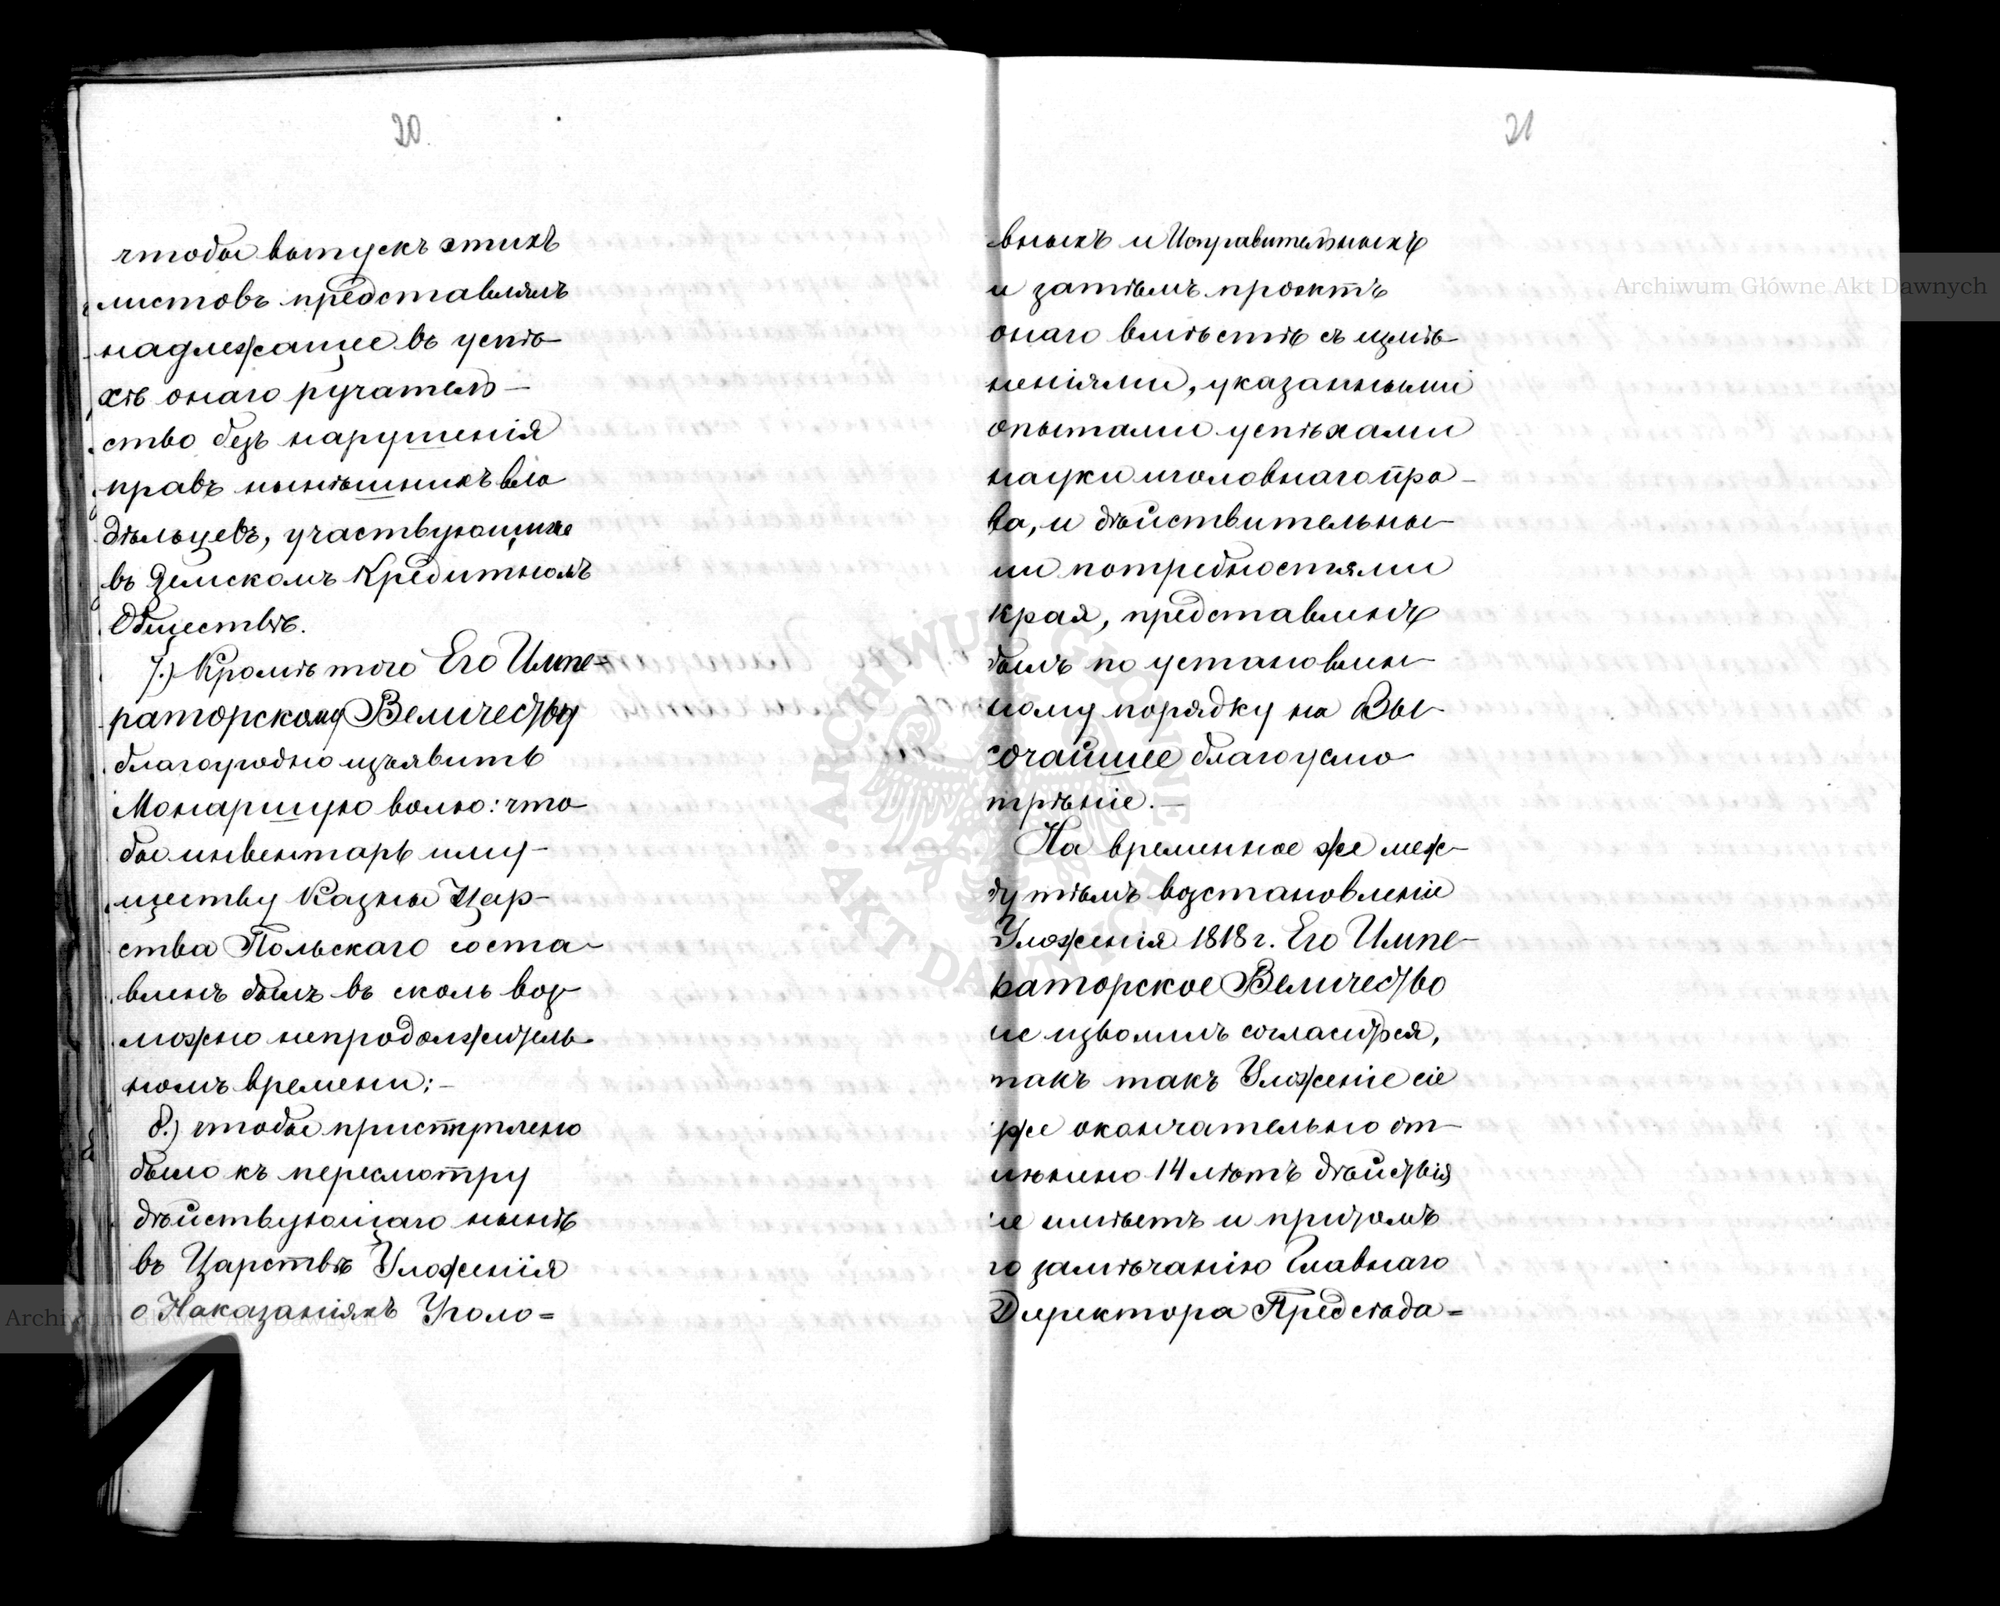 20.
чтобы выпускъ этихъ
листовъ представлялъ
надлежащее въ успѣ-
хѣ онаго ручатель-
ство безъ нарушенія
правъ нынѣшнихъ вла
дѣльцевъ, участвующихъ
въ Земскомъ Кредитномъ
Обществѣ.
7.) Кромѣ того Его Импе-
раторскому Величеству
благоугодно изъявить
Монаршую волю: что
бы инвентарь иму-
ществу Казны Цар-
ства Польскаго соста-
вленъ былъ въ сколь воз-
можно непродолжитель-
номъ времени:-
8.) чтобы приступлено
было къ пересмотру
дѣйствующаго нынѣ
въ Царствѣ Уложенія
о Наказаніяхъ Уголо=
21
вныхъ и Исправительныхъ
и затѣмъ проэктъ
онаго вмѣстѣ съ измѣ-
неніями, указанными
опытами успѣхами
науки уголовнаго пра-
ва, и дѣйствительны-
ми потребностями
края, представленъ
былъ по установлен-
ному порядку на Вы-
сочайшее благоусмо
трѣніе.-
На временное же меж-
ду тѣмъ возстановленіе
Уложенія 1818 г. Его Импе-
раторское Величество
не изволилъ согласиться,
такъ какъ Уложеніе сіе
уже окончательно от-
мѣнено 14 лѣтъ дѣйствія
не имѣетъ и притомъ
по замѣчанію Главнаго
Директора Предсѣда=
Archiwum Główne Akt Dawnych
Archiwum Główne Akt Dawnych
ARCHIWUM GŁÓWNE
AKT DAWNYCH